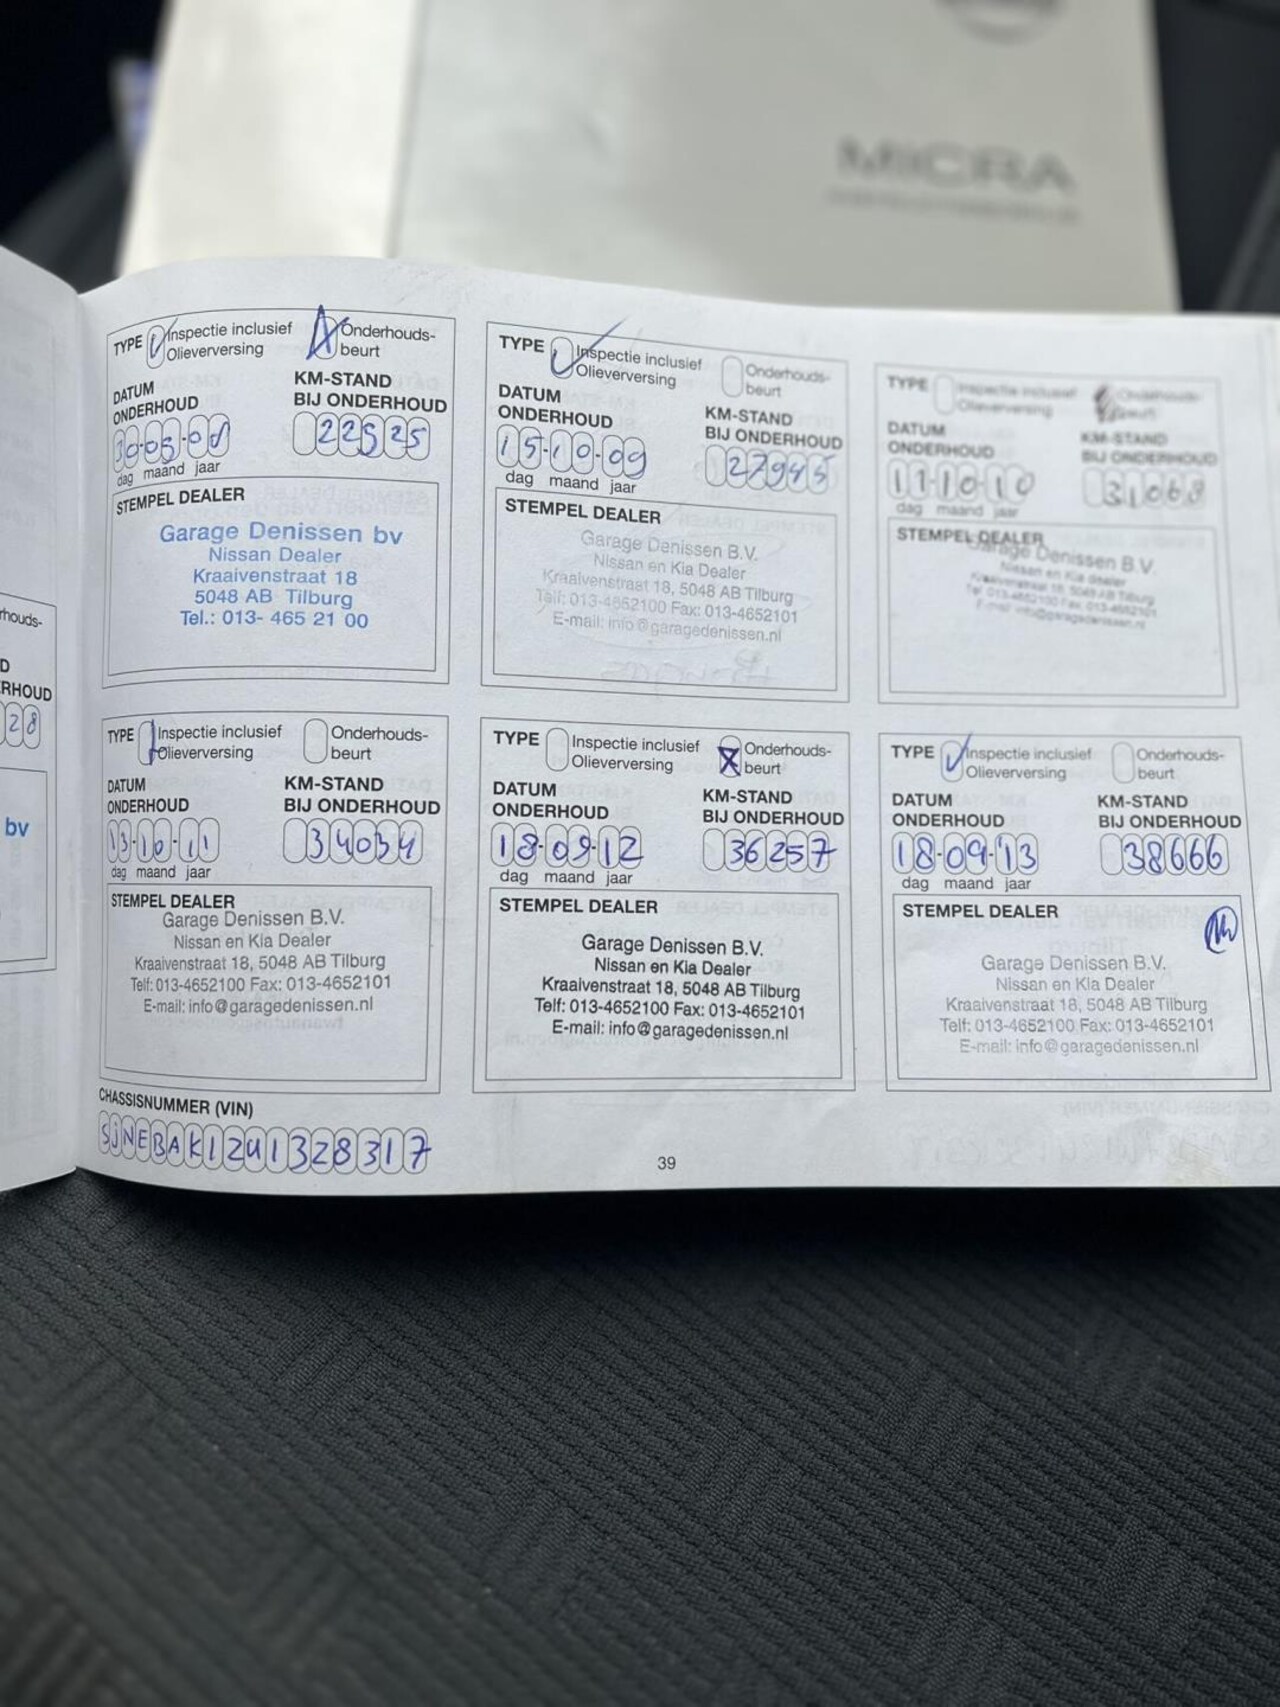 MICRA
rhouds-
D
RHOUD
28
bv
TYPE Inspectie inclusief Olieverversing Onderhouds-beurt
DATUM ONDERHOUD
KM-STAND BIJ ONDERHOUD
22525
dag maand jaar
STEMPEL DEALER
Garage Denissen bv
Nissan Dealer
Kraaivenstraat 18
5048 AB Tilburg
Tel.: 013- 465 21 00
TYPE Inspectie inclusief Olieverversing Onderhouds-beurt
DATUM ONDERHOUD
KM-STAND BIJ ONDERHOUD
15-10-09
27945
dag maand jaar
STEMPEL DEALER
Garage Denissen B.V.
Nissan en Kia Dealer
Kraaivenstraat 18, 5048 AB Tilburg
Telf: 013-4652100 Fax: 013-4652101
E-mail: info@garagedenissen.nl
TYPE Inspectie inclusief Olieverversing Onderhouds-beurt
DATUM ONDERHOUD
KM-STAND BIJ ONDERHOUD
11 10 10
31068
dag maand jaar
STEMPEL DEALER
Garage Denissen B.V.
Nissan en Kia dealer
Kraaivenstraat 18, 5048 AB Tilburg
Tel: 013-4652100 Fax: 013-4652101
E-mail: info@garagedenissen.nl
TYPE Inspectie inclusief Olieverversing Onderhouds-beurt
DATUM ONDERHOUD
KM-STAND BIJ ONDERHOUD
13-10-11
34034
dag maand jaar
STEMPEL DEALER
Garage Denissen B.V.
Nissan en Kia Dealer
Kraaivenstraat 18, 5048 AB Tilburg
Telf: 013-4652100 Fax: 013-4652101
E-mail: info@garagedenissen.nl
TYPE Inspectie inclusief Olieverversing Onderhouds-beurt
DATUM ONDERHOUD
KM-STAND BIJ ONDERHOUD
18-09-12
36257
dag maand jaar
STEMPEL DEALER
Garage Denissen B.V.
Nissan en Kia Dealer
Kraaivenstraat 18, 5048 AB Tilburg
Telf: 013-4652100 Fax: 013-4652101
E-mail: info@garagedenissen.nl
TYPE Inspectie inclusief Olieverversing Onderhouds-beurt
DATUM ONDERHOUD
KM-STAND BIJ ONDERHOUD
18-09-13
38666
dag maand jaar
STEMPEL DEALER
Garage Denissen B.V.
Nissan en Kia Dealer
Kraaivenstraat 18, 5048 AB Tilburg
Telf: 013-4652100 Fax: 013-4652101
E-mail: info@garagedenissen.nl
CHASSISNUMMER (VIN)
SJNEBAK12U1328317
39